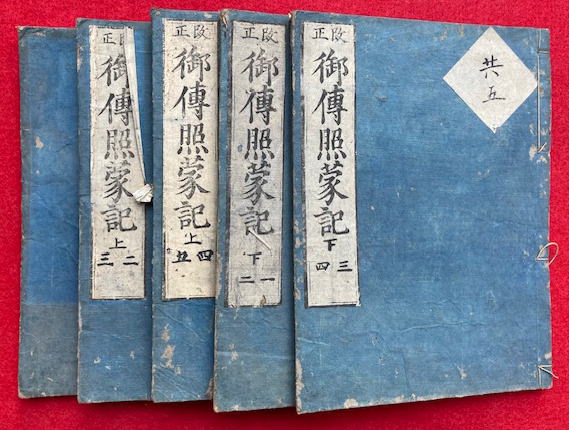 共五
改正
御傳照蒙記
下
三四
改正
御傳照蒙記
下
一二
改正
御傳照蒙記
上
四五
改正
御傳照蒙記
上
二三